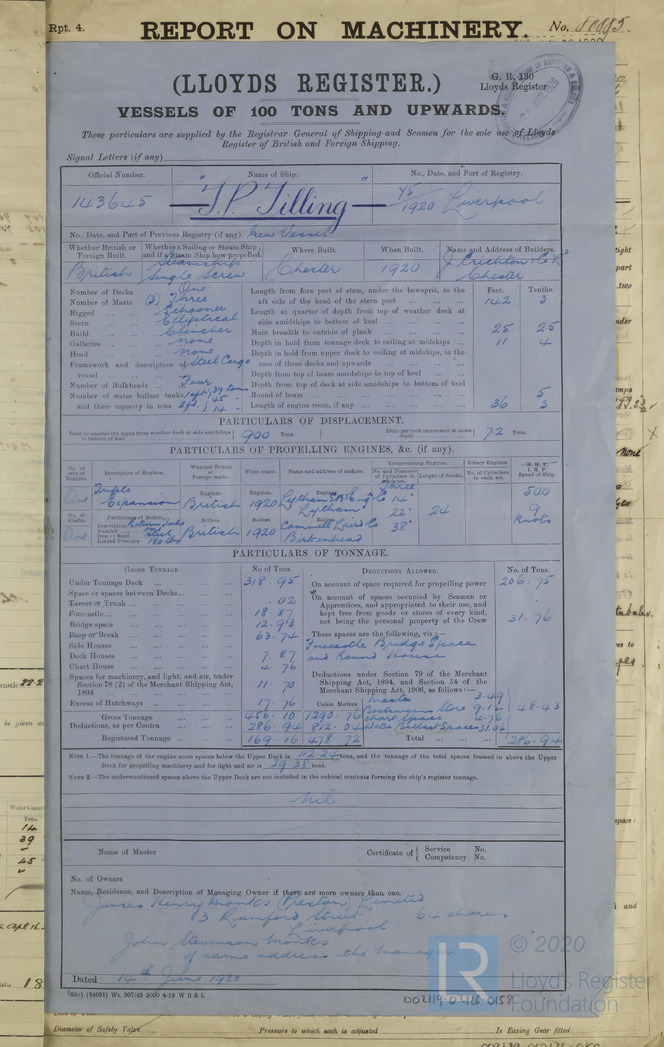 Rpt. 4.
REPORT ON MACHINERY.
No. 80885.
(LLOYDS REGISTER.)
G. R. 130
Lloyds Register
VESSELS OF 100 TONS AND UPWARDS.
These particulars are supplied by the Registrar General of Shipping and Seamen for the sole use of Lloyds
Register of British and Foreign Shipping.
Signal Letters (if any)
Official Number. Name of Ship. No., Date, and Port of Registry.
143645 "J.P. Tilling" 75/1920 Liverpool
No., Date, and Port of Previous Registry (if any). New Vessel
Whether British or Foreign Built. Whether a Sailing or Steam Ship; and if a Steam Ship how propelled. Where Built. When Built. Name and Address of Builders.
British Steamship Single Screw Chester 1920 J. Crichton & Co Ld Chester
Number of Decks One
Number of Masts (3) Three
Rigged Schooner
Stern Elliptical
Build Clincher
Galleries none
Head none
Framework and description of vessel Steel Cargo
Number of Bulkheads Four
Number of water ballast tanks, and their capacity in tons
Feet. Tenths.
Length from fore part of stem, under the bowsprit, to the aft side of the head of the stern post 142 3
Length at quarter of depth from top of weather deck at side amidships to bottom of keel
Main breadth to outside of plank 25 25
Depth in hold from tonnage deck to ceiling at midships 11 4
Depth in hold from upper deck to ceiling at midships, in the case of three decks and upwards
Depth from top of beam amidships to top of keel
Depth from top of deck at side amidships to bottom of keel
Round of beam 5
Length of engine room, if any 36 3
PARTICULARS OF DISPLACEMENT.
Total to quarter the depth from weather deck at side amidships to bottom of keel 900 Tons. Ditto per inch immersion at same depth 7.2 Tons.
PARTICULARS OF PROPELLING ENGINES, &c. (if any).
No. of sets of Engines. Description of Engines. Whether British or Foreign made. When made. Name and address of makers. Reciprocating Engines. Rotary Engines. N.H.P. I.H.P. Speed of Ship.
No. and Diameter of Cylinders in each set. Length of Stroke. No. of Cylinders in each set.
One Triple Expansion Engines. British Engines. 1920 Engines. Lytham S.B. & Eng Co Lytham Three 14" 22" 38" 24 500
No. of Shafts. Particulars of Boilers. Boilers. Boilers. Boilers.
One Description Number one Iron or Steel steel Loaded Pressure 180 lbs British 1920 Cammell Laird Co Birkenhead 9 Knots
PARTICULARS OF TONNAGE.
Gross Tonnage. No. of Tons. Deductions Allowed. No. of Tons.
Under Tonnage Deck 318.95
Space or spaces between Decks
Turret or Trunk .02
Forecastle 18.37
Bridge space 12.93
Poop or Break 63.74
Side Houses
Deck Houses 7.87
Chart House 4.76
Spaces for machinery, and light, and air, under Section 78 (2) of the Merchant Shipping Act, 1894 11.70
Excess of Hatchways 17.76
Cubic Metres
Gross Tonnage 456.10 1290.76
Deductions, as per Contra 286.94 812.04
Registered Tonnage 169.16 478.72
On account of space required for propelling power 206.75
On account of spaces occupied by Seamen or Apprentices, and appropriated to their use, and kept free from goods or stores of every kind, not being the personal property of the Crew 31.76
These spaces are the following, viz.:—
Forecastle Bridge Space and Round House
Deductions under Section 79 of the Merchant Shipping Act, 1894, and Section 54 of the Merchant Shipping Act, 1906, as follows:—
Master 3.49
Boatswains Store 9.12
Chart Space 4.76
Water Ballast Spaces 31.06
48.43
Total 286.94
Note 1.—The tonnage of the engine room spaces below the Upper Deck is 112.24 tons, and the tonnage of the total spaces framed in above the Upper Deck for propelling machinery and for light and air is 29.35 tons.
Note 2.—The undermentioned spaces above the Upper Deck are not included in the cubical contents forming the ship's register tonnage.
nil
Name of Master
Certificate of { Service No. Competency No.
No. of Owners
Name, Residence, and Description of Managing Owner if there are more owners than one.
James Henry Monks (Preston) Limited
13 Rumford Street 64 shares
Liverpool
John Stevenson Monks
of same address the manager
Dated 14th June 1920
© 2020
Lloyd's Register
Foundation
002119-0426-0158
Diameter of Safety Valve
Pressure to which each is adjusted
Is Easing Gear fitted